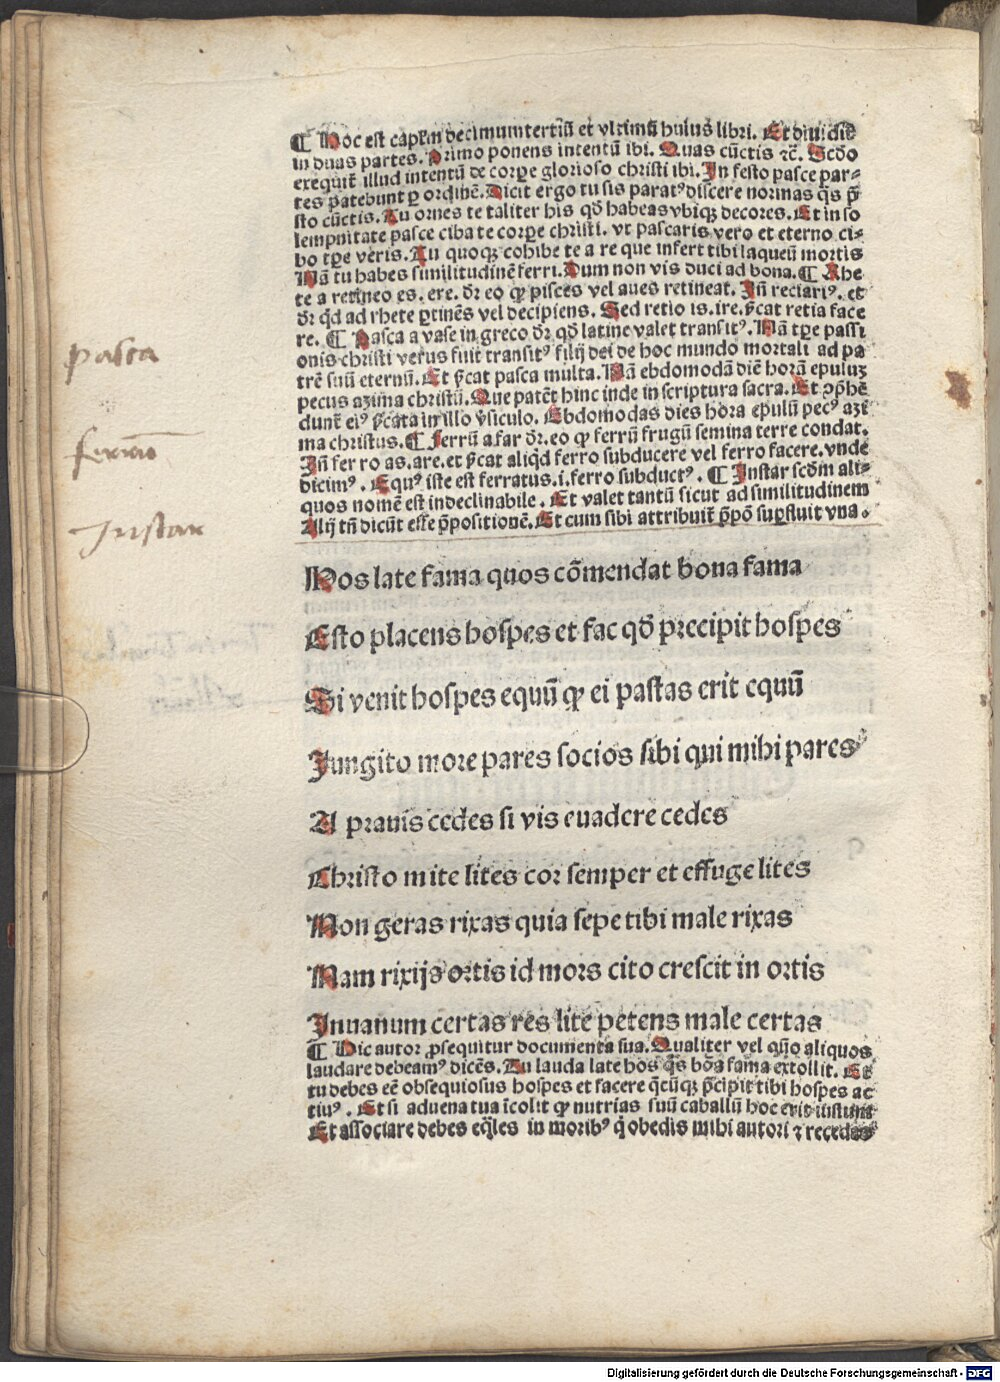 ¶ Hoc est capľm decimumtertiū et vltimū huius libri. Et diuidit̃
in duas partes. Primo ponens intentū ibi. Quas cūctis ⁊c̃. Scd̄o
exequit̃ illud intentū de corꝑe glorioso christi ibi. In festo pasce par⸗
tes patebunt ꝑ ordinē. Dicit ergo tu sis paratꝰ discere normas q̄s p̄
sto cūctis. Tu ornes te taliter his qd̄ habeas vbiqꝫ decores. Et in so
lempnitate pasce ciba te corꝑe christi. vt pascaris vero et eterno ci⸗
bo tꝑe veris. Tu quoqꝫ cohibe te a re que infert tibi laqueū mortis
Nā tu habes similitudinē ferri. Dum non vis duci ad bona. ¶ Rhe
te a retineo es. ere. dr̄ eo ꝙ pisces vel aues retineat. Iñ reciariꝰ. et
dr̄ qd̄ ad rhete ꝑtinēs vel decipiens. Sed retio is. ire. p̄cat retia face
re. ¶ Pasca a vase in greco dr̄ qd̄ latine valet transitꝰ. Nā tꝑe passi
onis christi verus fuit transitꝰ filij dei de hoc mundo mortali ad pa
trē suū eternū. Et p̄cat pasca multa. Nā ebdomodā diē horā epuluꝫ
pecus azima christū. Que patēt hinc inde in scriptura sacra. Et ꝯp̄hē
dunt̃ eiꝰ p̄cata in illo v̄siculo. Ebdomodas dies hora epulū pecꝰ azi
ma christus. ¶ Ferrū a far dr̄. eo ꝙ ferrū frugū semina terre condat.
Iñ fer ro as. are. et p̄cat aliqd̄ ferro subducere vel ferro facere. vnde
dicimꝰ. Equꝰ iste est ferratus. i. ferro subductꝰ. ¶ Instar scd̄m ali⸗
quos nomē est indeclinabile. Et valet tantū sicut ad similitudinem
Alij tn̄ dicūt esse p̄positionē. Et cum sibi attribuit̃ p̄pō suꝑfluit vna.
pasca
ferrū
Instar
Hos late fama quos cōmendat bona fama
Esto placens hospes et fac qd̄ precipit hospes
Si venit hospes equū ꝙ ei pastas erit equū
Jungito more pares socios sibi qui mihi pares
A prauis cedes si vis euadere cedes
Christo mite lites cor semper et effuge lites
Non geras rixas quia sepe tibi male rixas
Nam rixijs ortis id mors cito crescit in ortis
Inuanum certas res lite petens male certas
¶ Hic autor ꝓsequitur documenta sua. Qualiter vel quō aliquos
laudare debeamꝰ dicēs. Tu lauda late hos q̄s bōa fama extollit. Et
tu debes eē obsequiosus hospes et facere q̄cūqꝫ p̄cipit tibi hospes ac
tiuꝰ. Et si aduena tua īcolit ꝙ nutrias suū caballū hoc erit iustum
Et associare debes eq̄les in moribꝰ q̄ obedis mihi autori ⁊ recedas
Digitalisierung gefördert durch die Deutsche Forschungsgemeinschaft - DFG